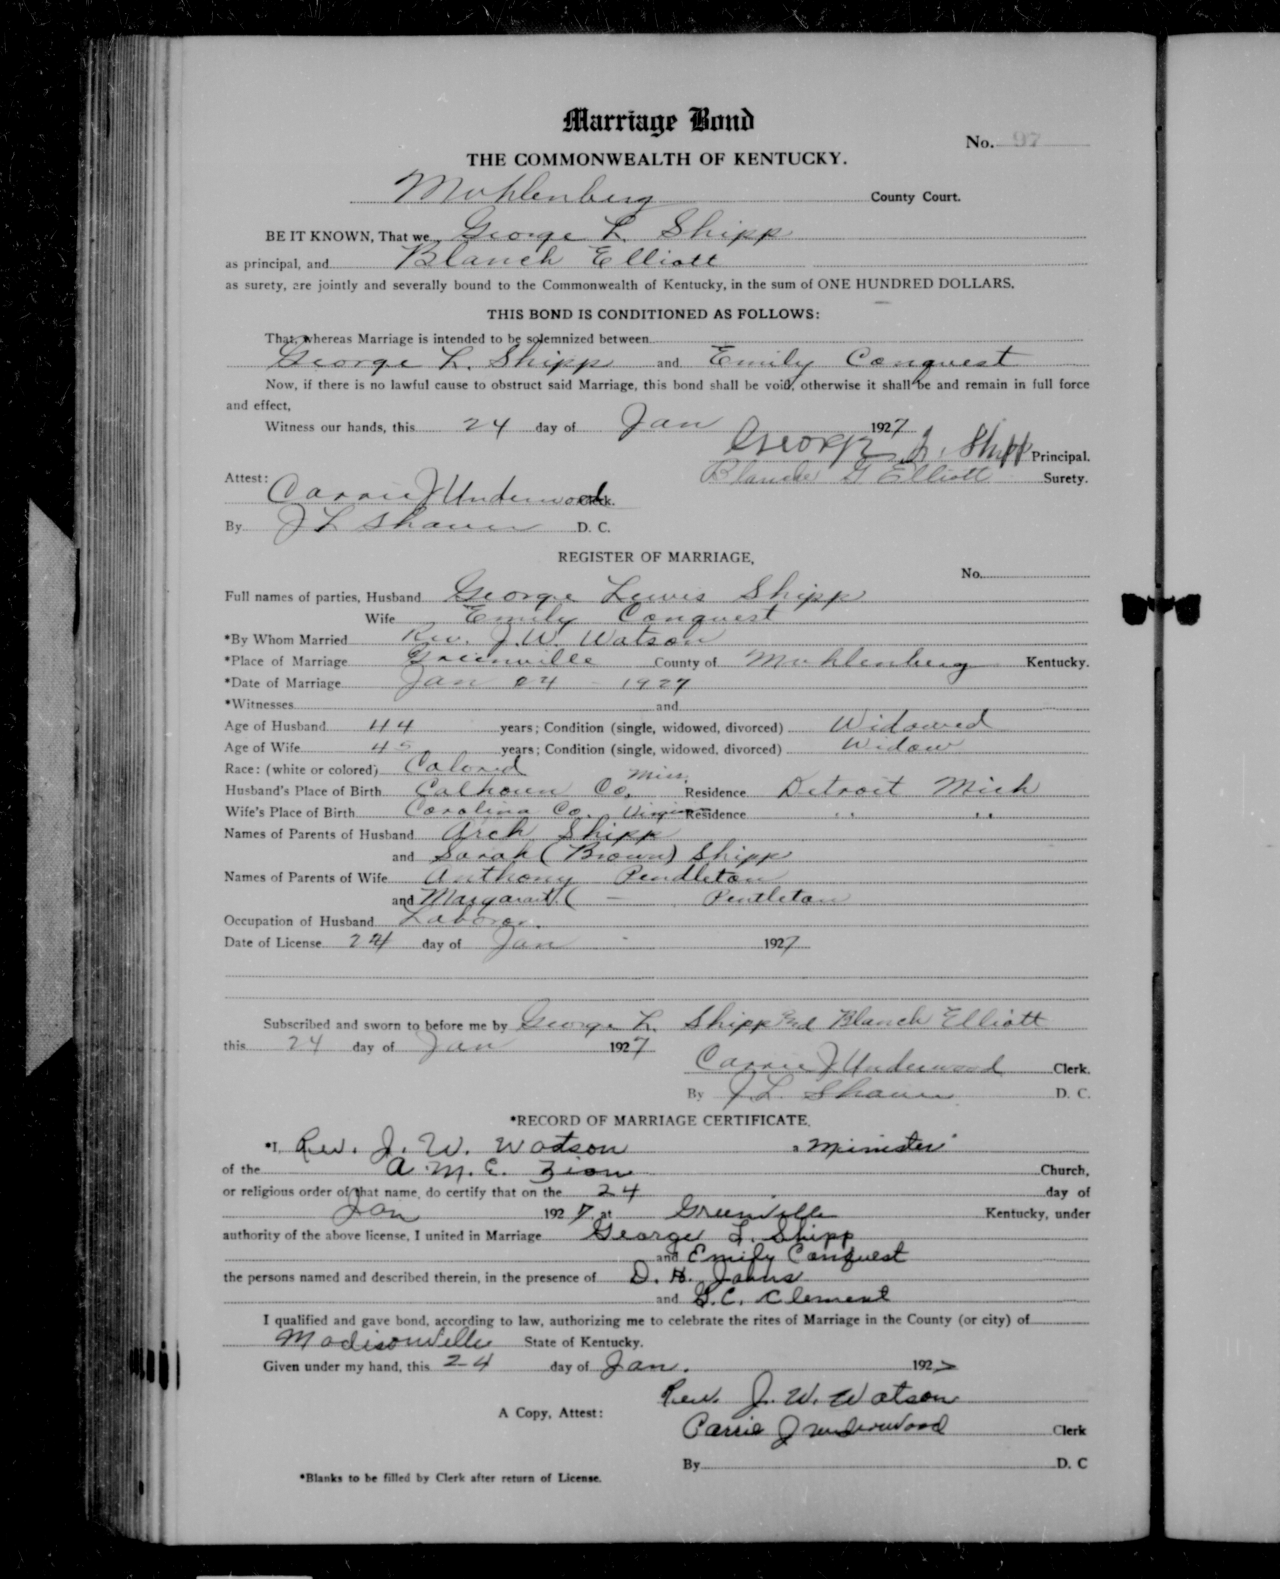 Marriage Bond
No. 97
THE COMMONWEALTH OF KENTUCKY.
Muhlenberg County Court.
BE IT KNOWN, That we George L. Shipp
as principal, and Blanch Elliott
as surety, are jointly and severally bound to the Commonwealth of Kentucky, in the sum of ONE HUNDRED DOLLARS.
THIS BOND IS CONDITIONED AS FOLLOWS:
That, whereas Marriage is intended to be solemnized between
George L. Shipp and Emily Conquest
Now, if there is no lawful cause to obstruct said Marriage, this bond shall be void, otherwise it shall be and remain in full force
and effect,
Witness our hands, this 24 day of Jan 1927
George L. Shipp Principal.
Attest: Blanche G Elliott Surety.
Carrie J Underwood Clerk.
By J L Shaver D. C.
REGISTER OF MARRIAGE,
No.
Full names of parties, Husband George Lewis Shipp
Wife Emily Conquest
*By Whom Married Rev. J. W. Watson
*Place of Marriage Greenville County of Muhlenberg Kentucky.
*Date of Marriage Jan 24 - 1927
*Witnesses and
Age of Husband 44 years; Condition (single, widowed, divorced) Widowed
Age of Wife 45 years; Condition (single, widowed, divorced) Widow
Race: (white or colored) Colored
Husband's Place of Birth Calhoun Co, Miss. Residence Detroit Mich
Wife's Place of Birth Carolina Co. Virginia Residence " "
Names of Parents of Husband Arch Shipp
and Sarah (Brown) Shipp
Names of Parents of Wife Anthony Pendleton
and Margaret ( — Pentleton
Occupation of Husband Laborer.
Date of License 24 day of Jan 1927
Subscribed and sworn to before me by George L. Shipp and Blanch Elliott
this 24 day of Jan 1927
Carrie J Underwood Clerk.
By J. L. Shaver D. C.
*RECORD OF MARRIAGE CERTIFICATE,
*I, Rev. J. W. Watson a Minister
of the A. M. E. Zion Church,
or religious order of that name, do certify that on the 24 day of
Jan 1927, at Greenville Kentucky, under
authority of the above license, I united in Marriage George L. Shipp
and Emily Conquest
the persons named and described therein, in the presence of D. H. Johns
and G. C. Clement
I qualified and gave bond, according to law, authorizing me to celebrate the rites of Marriage in the County (or city) of
Madisonville State of Kentucky.
Given under my hand, this 24 day of Jan. 1927
Rev. J. W. Watson
A Copy, Attest: Carrie J Underwood Clerk
By D. C
*Blanks to be filled by Clerk after return of License.